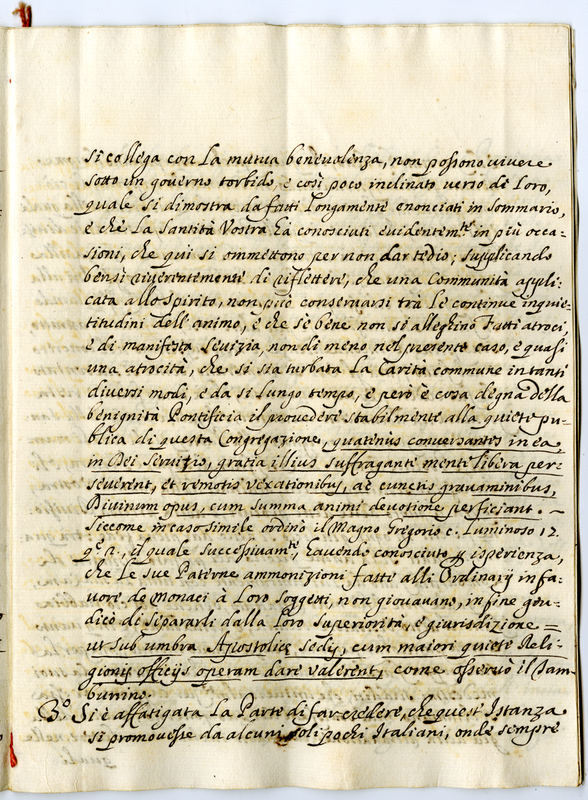 si collega con la mutua benevolenza, non possono vivere
sotto un governo torbido, e così poco inclinato verso de loro,
quale si dimostra da fatti longamente enonciati in sommario,
e che la Santità Vostra hà conosciuti evidentem.te in più occa=
sioni, che qui si ommettono per non dar tedio; supplicando
bensì riverentemente di riflettere, che una Communità appli=
cata allo spirito, non può conservarsi trà le continue inquie=
titudini dell'animo, e che se bene non si alleghino Fatti atroci,
e di manifesta sevizia, non di meno nel presente caso, è quasi
una atrocità, che si sia turbata la Carità commune in tanti
diversi modi, e da si lungo tempo, e però è cosa degna della
benignità Pontificia il provedere stabilmente alla quiete pu=
blica di questa Congregazione, quatenus conversantes in ea,
in Dei servizio, gratia illius suffragante mente libera per=
severent, et remotis vexationibus, ac cunctis gravaminibus,
Divinum opus, cum summa animi devotione perficiant. -
Siccome in caso simile ordinò il Magno Gregorio c. Luminoso 17.
q.e 2., il quale successivam.te, havendo conosciuto per isperienza,
che le sue Paterne ammonizioni fatte alli Ordinarij in fa=
vore de Monaci à loro soggetti, non giovavano, in fine giu=
dicò di separarli dalla loro superiorità, e giurisdizione =
ut sub umbra Apostolicę sedis, cum maiori quiete Reli=
gionis officijs operam dare valerent, come osservò il Tam=
burino.
3.o Si è affatigata la Parte di far credere, che quest'Istanza
si promovesse da alcuni soli pochi Italiani, onde sempre